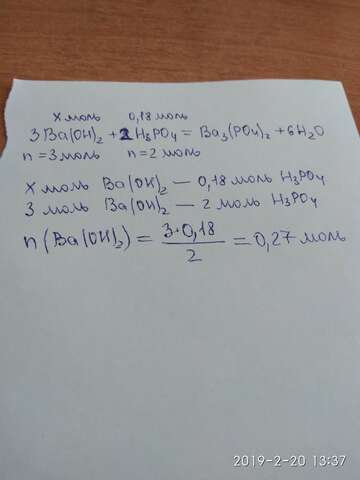 x моль 0,18 моль
3Ba(OH)₂ + 2H₃PO₄ = Ba₃(PO₄)₂ + 6H₂O
n = 3 моль n = 2 моль
x моль Ba(OH)₂ — 0,18 моль H₃PO₄
3 моль Ba(OH)₂ — 2 моль H₃PO₄
n(Ba(OH)₂) = 3·0,18 / 2 = 0,27 моль
2019-2-20 13:37